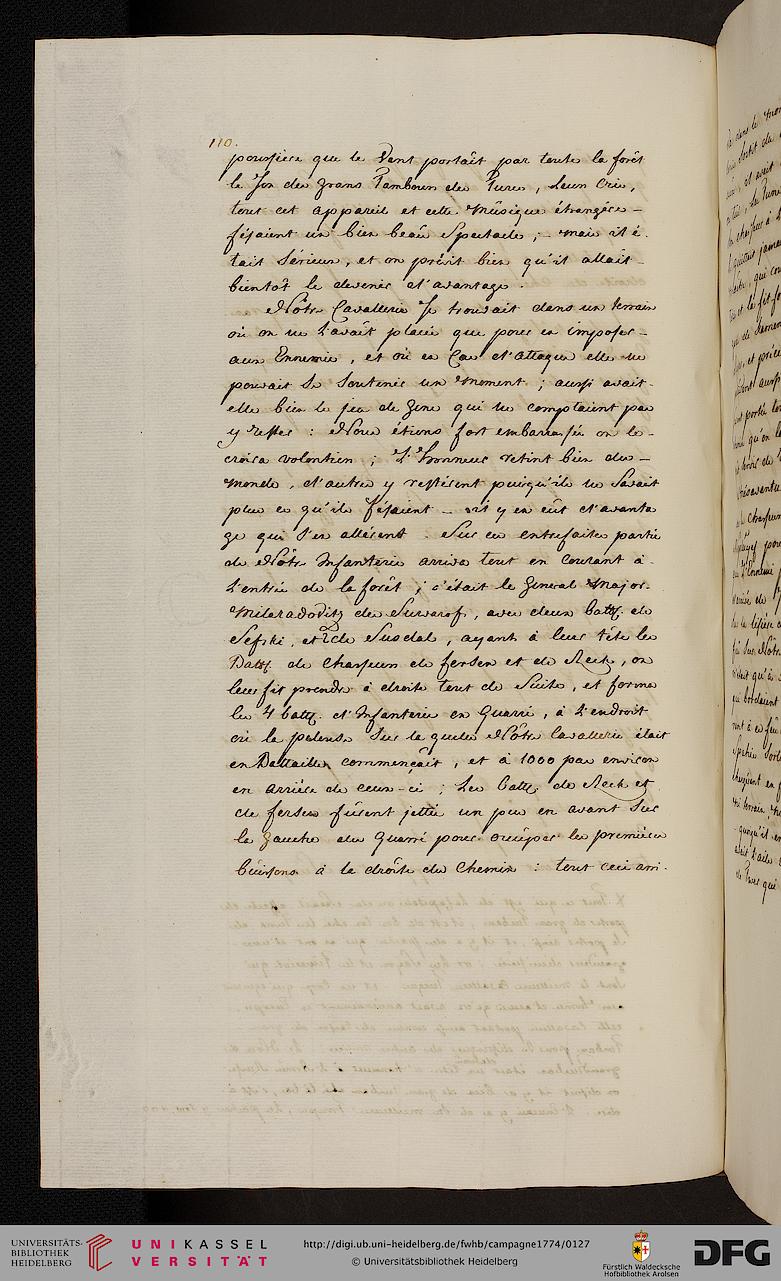 110.
poussiere que le Vent portait par toute la forêt
le Son des grans Tambours des Turcs, Leurs Cris,
tout cet appareil et cette Müsique étrangére -
fésaient un bien beau Spectacle ; - mais il é-
tait Sérieux, et on prévit bien qu'il allait -
bientôt le devenir d'avantage.
Nôtre Cavallerie Se trouvait dans un terrain
où on ne l'avait placée que pour en imposer -
aux Ennemis, et où en Cas d'attaque elle ne
pouvait Se Soutenir un moment ; aussi avait -
elle bien le jeu de gens qui ne comptaient pas
y rester : Nous étions fort embarassés on le -
croira volontiers ; L'honneur retint bien du -
monde, d'autres y restérent puisqu'ils ne Savait
plus ce qu'ils fésaient - et il y en eût d'avanta
ge qui S'en allérent. Sur ces entrefaites partie
de Nôtre Infanterie arriva tout en courant à
L'entrée de la forêt ; c'était le General Major -
Miloradoditz de Suwarof, avec deux batt. de
Sefski, et 2 de Susdal, ayant à leur tête les
Batt. de Chasseurs de fersen et de Reck, on
leur fit prendre à droite tout de Suite, et forma
les 4 batt. d'Infanterie en Quarré, à L'endroit
où la pelouse Sur laquelle Nôtre Cavallerie était
en Battaille, commençait, et à 1000 pas environ
en arriére de ceux-ci ; Les batt. de Reck et
de fersen fûrent jettés un peu en avant Sur
la gauche du Quarré pour occuper les premiers
büissons à la droite du Chemin : tout ceci arri-
UNIVERSITÄTS-
BIBLIOTHEK
HEIDELBERG
UNIKASSEL
VERSITÄT
http://digi.ub.uni-heidelberg.de/fwhb/campagne1774/0127
© Universitätsbibliothek Heidelberg
Fürstlich Waldecksche
Hofbibliothek Arolsen
DFG